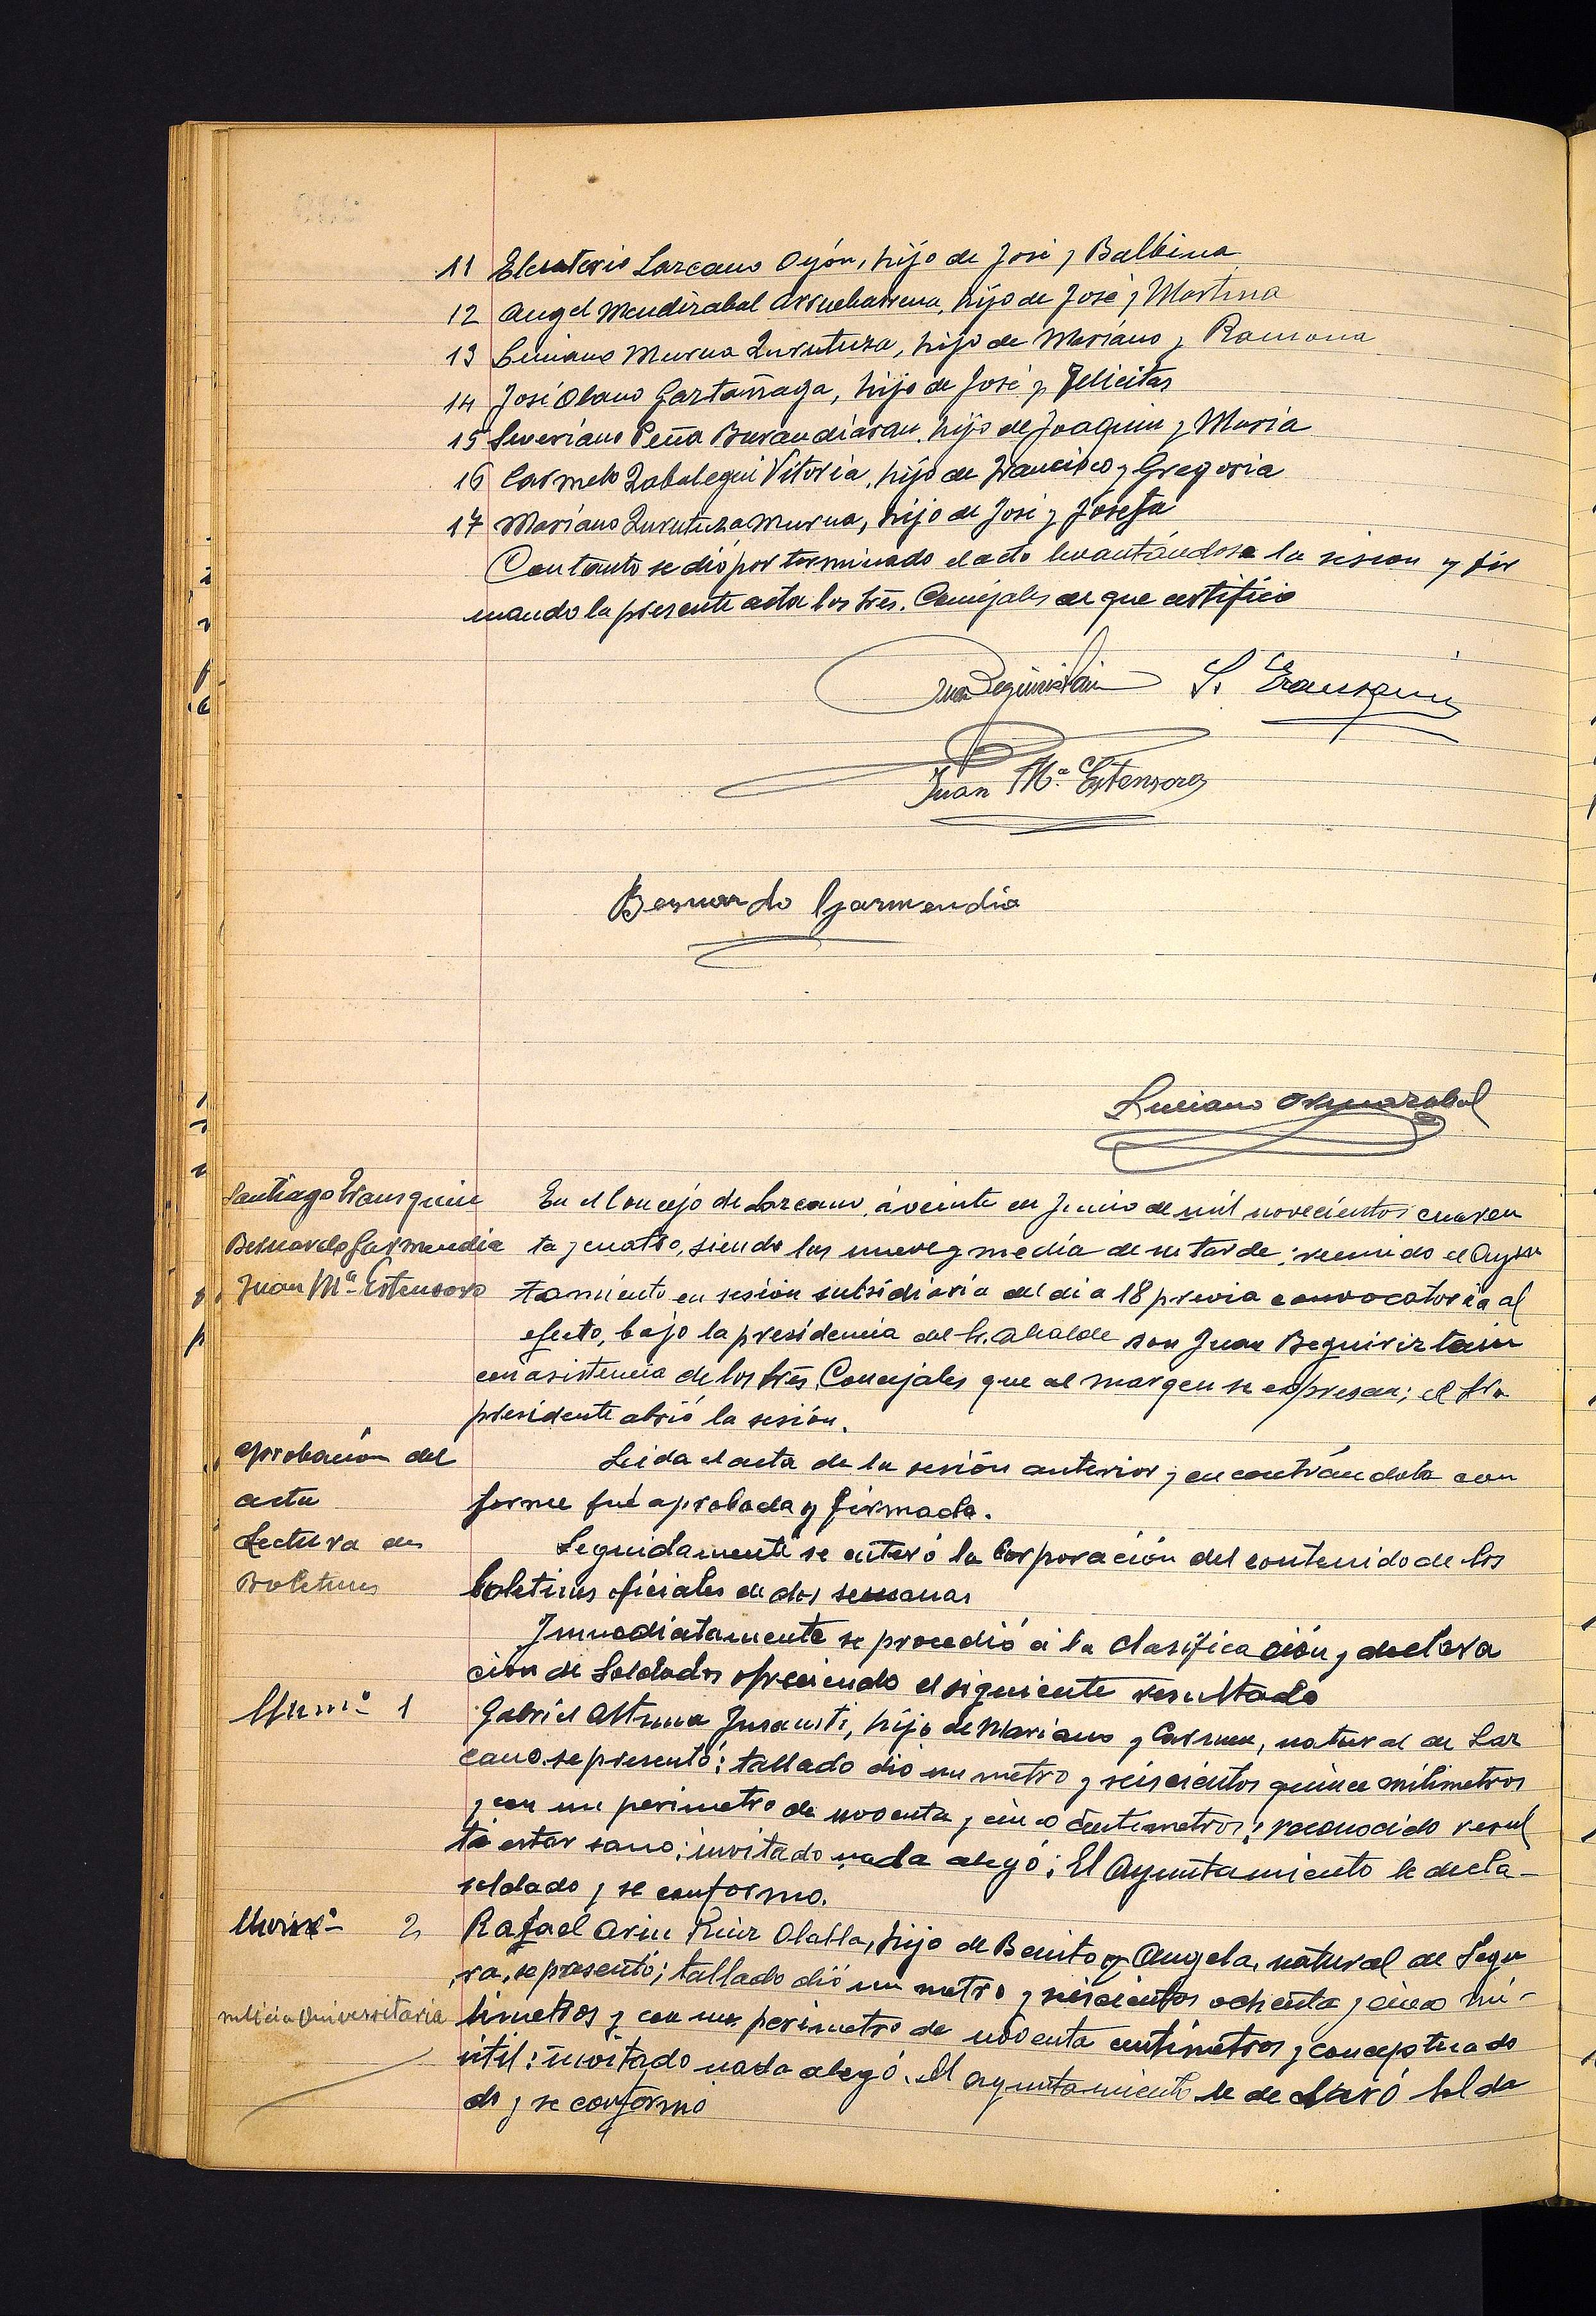 11 Eleuterio Lazcano Oyón, hijo de José y Balbina
12 Angel Mendizabal Arruebarrena, hijo de José y Martina
13 Luciano Murua Zurutuza, hijo de Mariano y Ramona
14 José Olano Gaztañaga, hijo de José y Felicitas
15 Severiano Peña Barandiaran, hijo de Joaquin y Maria
16 Carmelo Zabalegui Vitoria, hijo de Francisco y Gregoria
17 Mariano Zurutuza Murua, hijo de José y Josefa
Con tanto se dió por terminado el acto levantándose la sesion y fir
mando la presente acta los Srs. Concejales de que certifico
Juan Beguiristain S. Erausquin
Juan Mª Estensoro
Bernardo Garmendia
Luciano Ormazabal
Santiago Erausquin
Bernardo Garmendia
Juan Mª Estensoro
En el Concejo de Lazcano, á veinte de Junio de mil novecientos cuaren
ta y cuatro, siendo las nueve y media de su tarde; reunido el Ayun
tamiento en sesión subsidiaria del dia 18 previa convocatoria al
efecto, bajo la presidencia del Sr. Alcalde Don Juan Beguiriztain
con asistencia de los Srs. Concejales que al margen se expresan; el Sr.
presidente abrió la sesión.
Aprobacion del
acta
Leida el acta de la sesión anterior y encontrándola con
forme fué aprobada y firmada.
Lectura de
Boletines
Seguidamente se enteró la Corporación del contenido de los
boletines oficiales de dos semanas
Inmediatamente se procedió á la clasificación y declara
cion de Soldados ofreciendo el siguiente resultado
Numº 1
Gabriel Altuna Insausti, hijo de Mariano y Carmen, natural de Laz
cano se presentó; tallado dió un metro y seiscientos quince milimetros
y con un perimetro de noventa y cinco centimetros; reconocido resul
tó estar sano; invitado nada alegó; El Ayuntamiento le decla-
soldado y se conformo.
Numº 2
Rafael Arin Ruiz Olalla, hijo de Benito y Angela, natural de Segu
ra, se presentó; tallado dió un metro y seiscientos ochenta y cinco mi-
milicia Universitaria
limetros y con un perimetro de noventa centimetros y conceptuado
útil; invitado nada alegó. El ayuntamiento le declaró Solda
do y se conformó